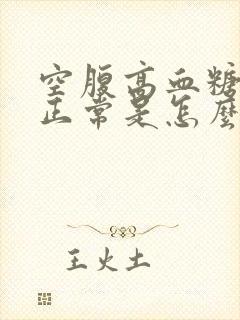 空腹高血糖
正常是怎麼
王火土